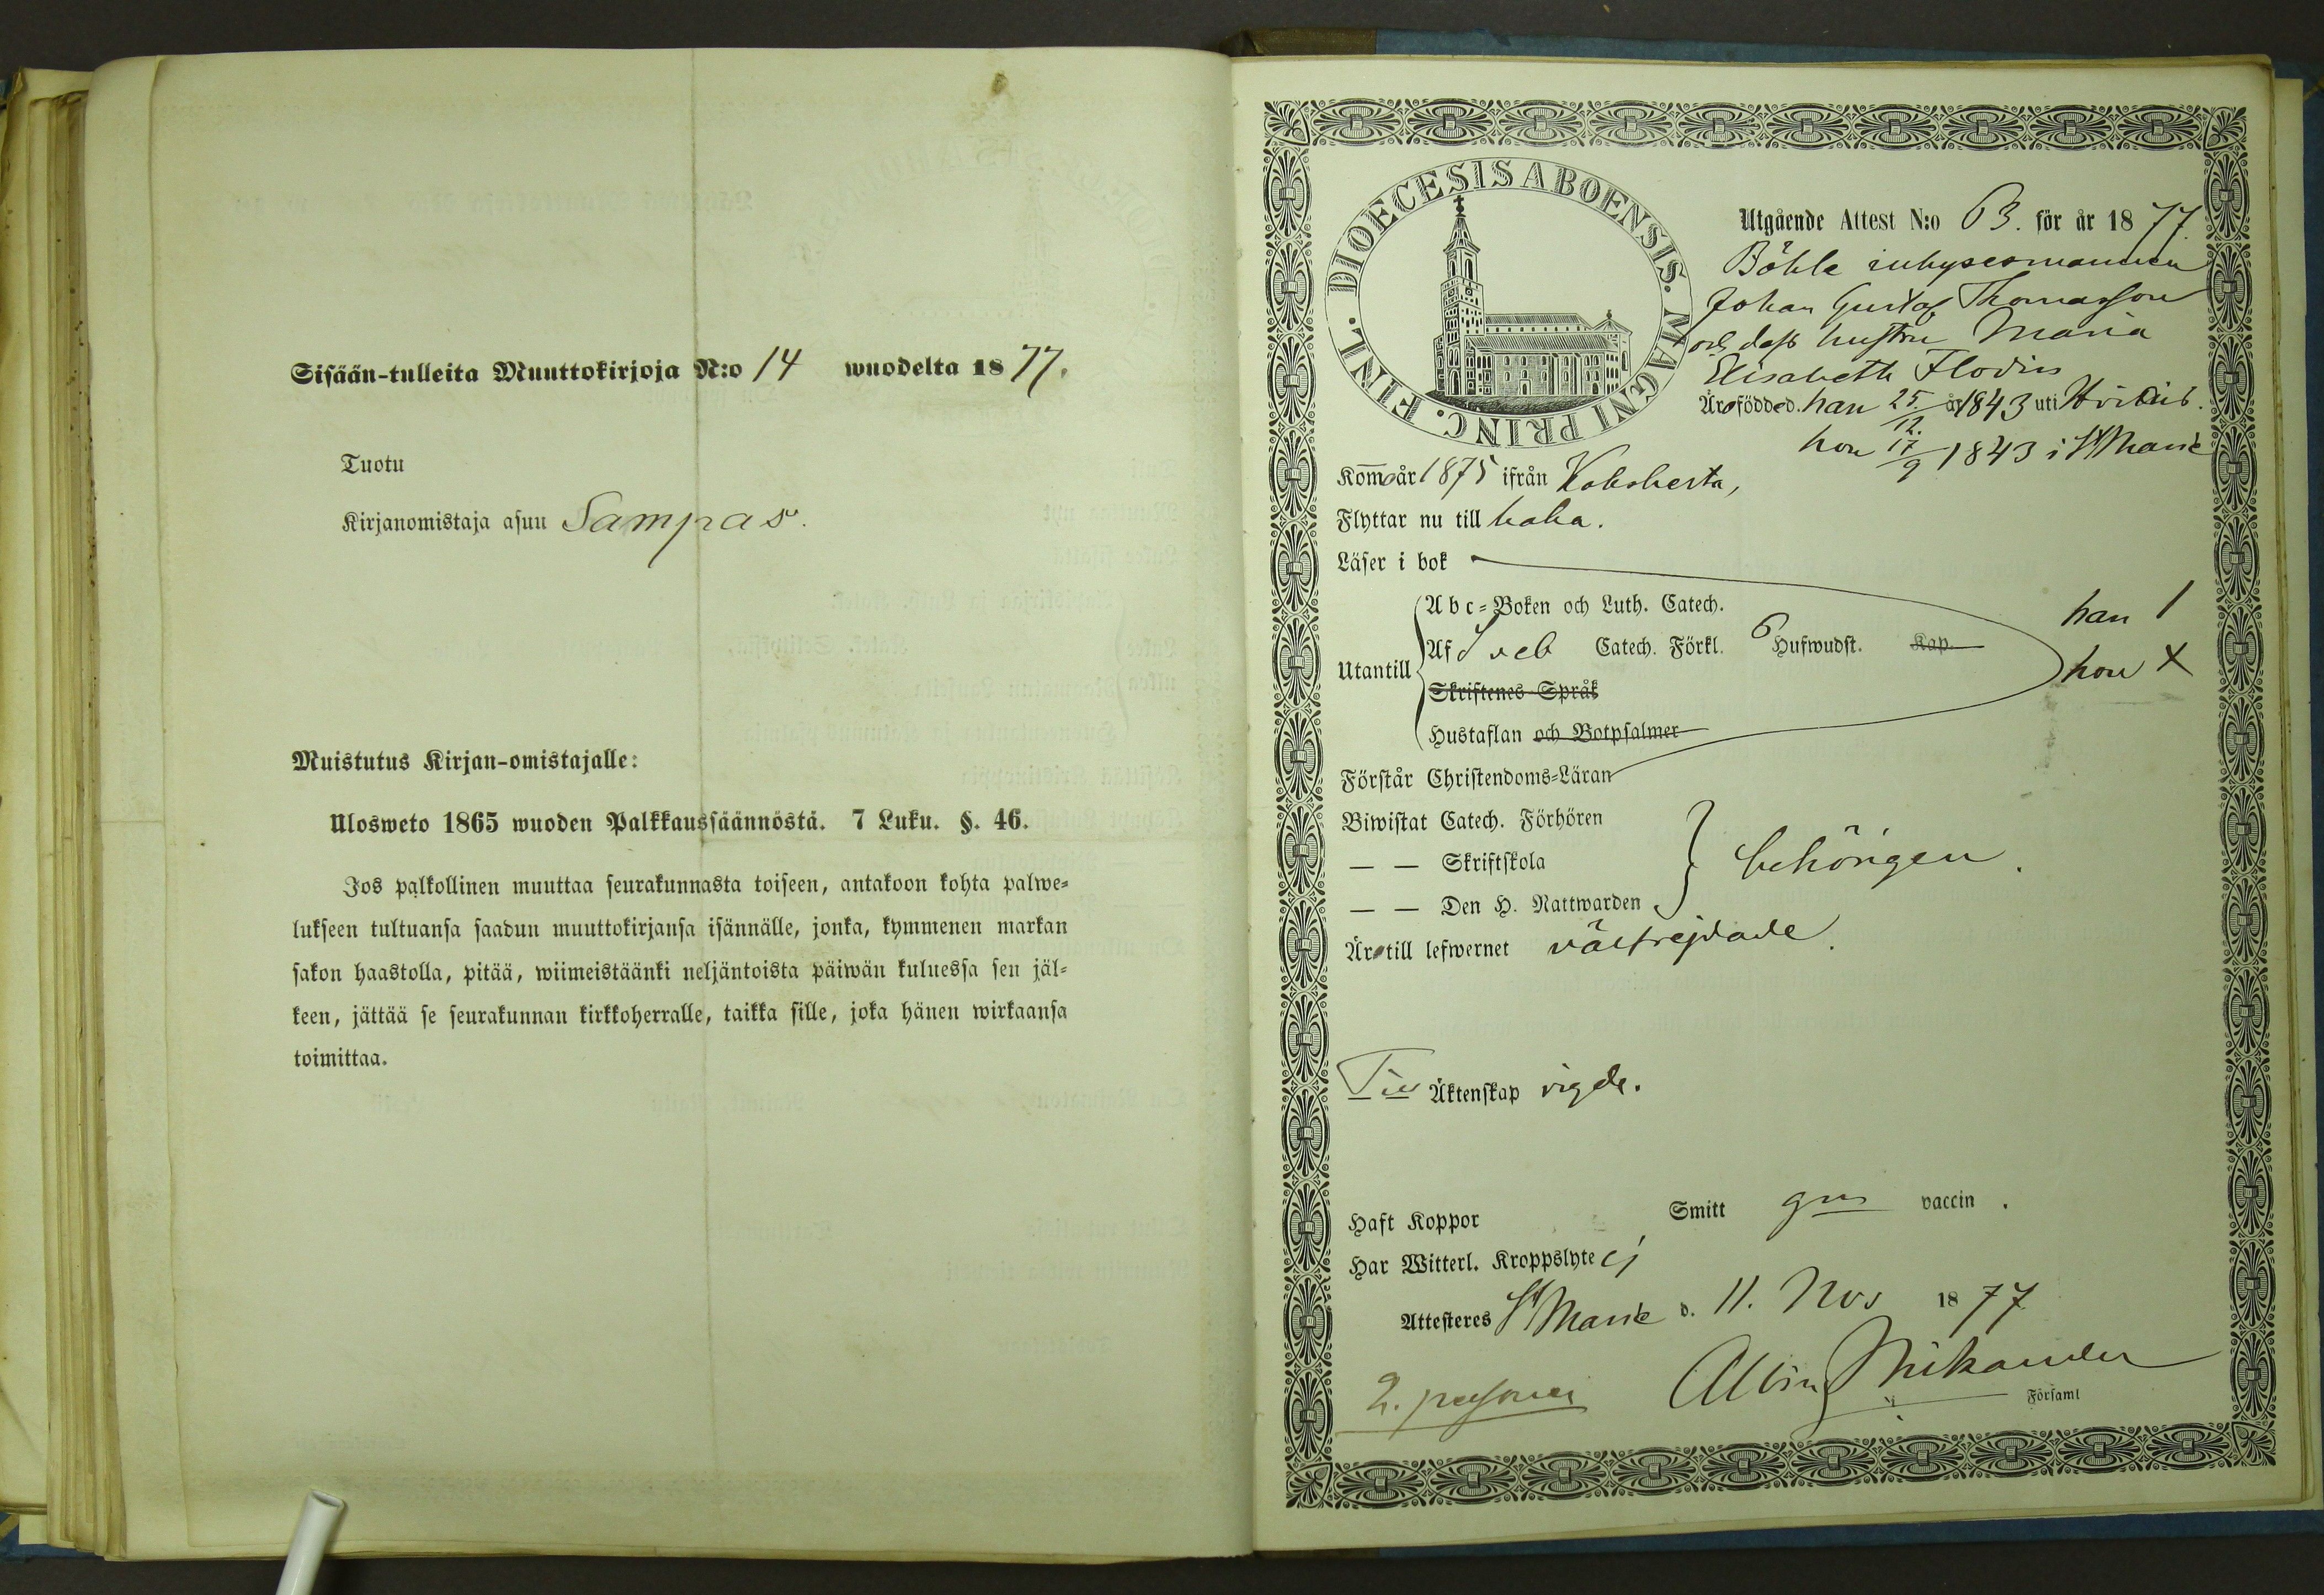 Sisään-tulleita Muuttokirjoja N:o 14 wuodelta 1877.
Tuotu
Kirjanomistaja asuu Sampas.
Muistutus Kirjan-omistajalle:
Ulosweto 1865 wuoden Palkkaussäännöstä. 7 Luku. §. 46.
Jos palkollinen muuttaa seurakunnasta toiseen, antakoon kohta palwe-
lukseen tultuansa saadun muuttokirjansa isännälle, jonka, kymmenen markan
sakon haastolla, pitää, wiimeistäänki neljäntoista päiwän kuluessa sen jäl-
keen, jättää se seurakunnan kirkkoherralle, taikka sille, joka hänen wirkaansa
toimittaa.
DIOECESIS ABOENSIS. MAGNI PRINC. FINL.
Utgående Attest N:o 63. för år 1877.
Böhle inhysesmannen
Johan Gustaf Thomasson
och dess hustru Maria
Elisabeth Flodin
Äro födde d. han 25/12. år 1843 uti
hon 17/9 1843 i St Marie
Kom̄o år 1875 ifrån
Flyttar nu till
Läser i bok
Abc-Boken och Luth. Catech.
han 1
Utantill
Af Sveb Catech. Förkl. 6 Hufwudst. Kap.
hon X
Skriftenes Språk
Hustaflan och Botpsalmer
Förstår Christendoms-Läran
Biwistat Catech. Förhören
— — Skriftskola
behörigen.
— — Den H. Nattwarden
Äro till lefwernet välfrejdade.
Till Äktenskap vigde.
Haft Koppor Smitt gm vaccin.
Har Witterl. Kroppslyte ej
Attesteres St Marie d. 11. Nov 1877
2. personer Albin Mikander
Församl